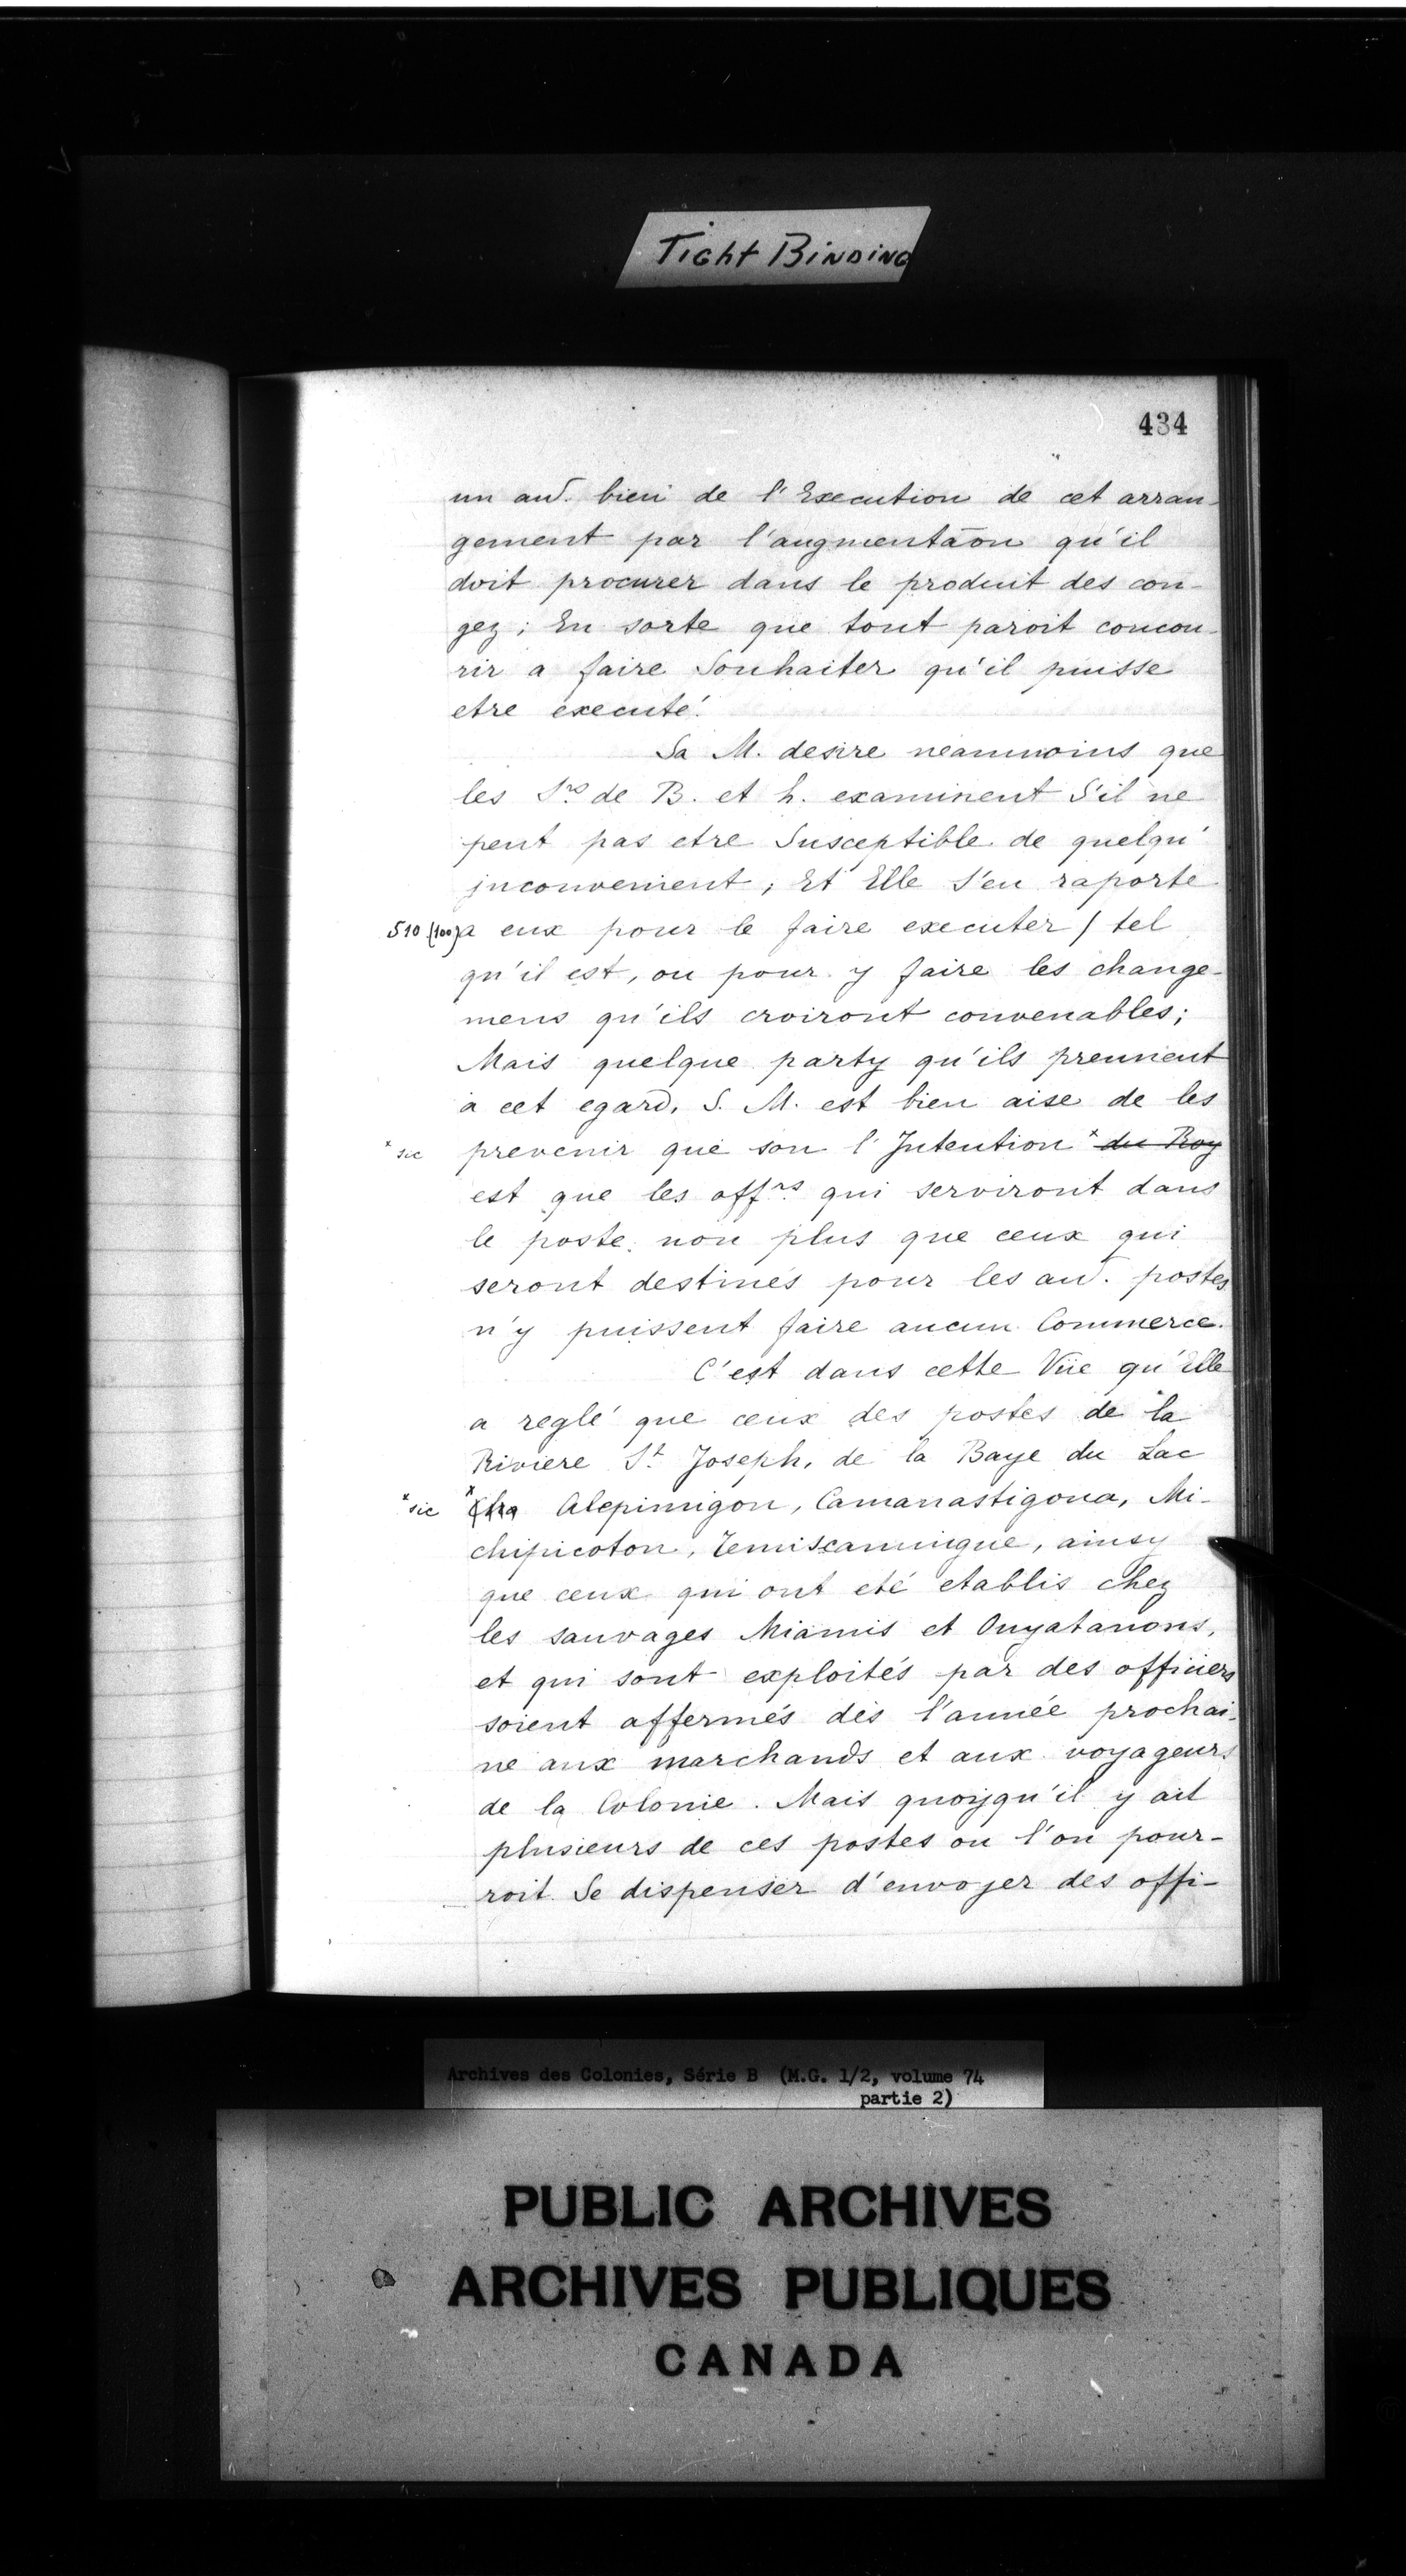 Tight Binding
434
un aut. bien de l'Execution de cet arran-
gement par l'augmentaōn qu'il
doit procurer dans le produit des con-
gez; En sorte que tout paroit concou-
rir a faire Souhaiter qu'il puisse
etre executé.
Sa M. desire neammoins que
les Srs de B. et h. examinent S'il ne
peut pas etre Susceptible de quelqu'
inconvenient; Et Elle s'en raporte
510 (100) a eux pour le faire executer / tel
qu'il est, ou pour y faire les change-
mens qu'ils croiront convenables;
Mais quelque party qu'ils prennent
a cet egard, S. M. est bien aise de les
x sic prevenir que son l'Intention x du Roy
est que les offrs qui serviront dans
le poste, non plus que ceux qui
seront destinés pour les aut. postes
n'y puissent faire aucun Commerce.
C'est dans cette Vüe qu'Elle
a reglé que ceux des postes de la
Riviere St Joseph, de la Baye du Lac
x sic x Alepimigon, Camanastigoua, Mi-
chipicoton, Temiscamingue, ainsy
que ceux qui ont eté etablis chez
les sauvages Miamis et Ouyatanons,
et qui sont exploités par des officiers
soient affermés dès l'année prochai-
ne aux marchands et aux voyageurs
de la Colonie. Mais quoyqu'il y ait
plusieurs de ces postes ou l'on pour-
roit Se dispenser d'envoyer des offi-
Archives des Colonies, Série B (M.G. 1/2, volume 74
partie 2)
PUBLIC ARCHIVES
ARCHIVES PUBLIQUES
CANADA